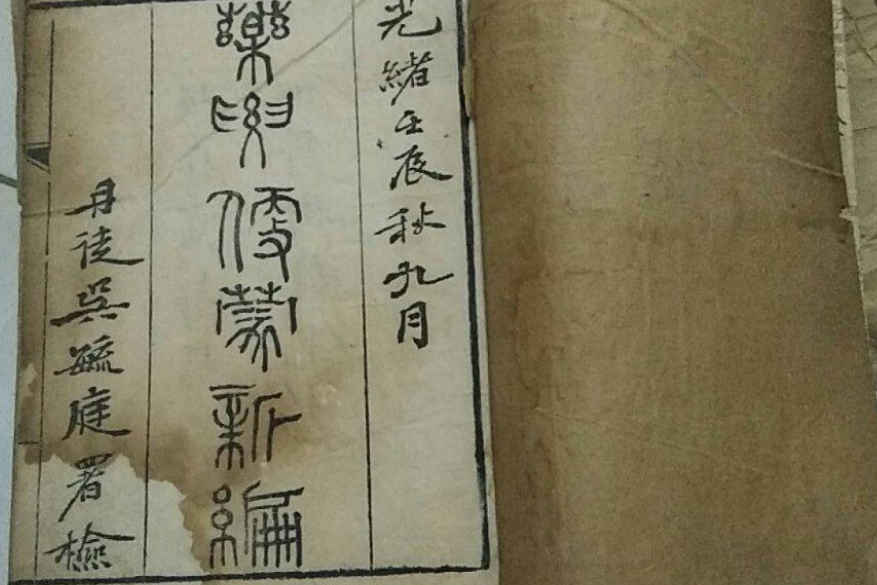 光緒壬辰秋九月
藥要便蒙新編
丹徒吳毓庭署檢